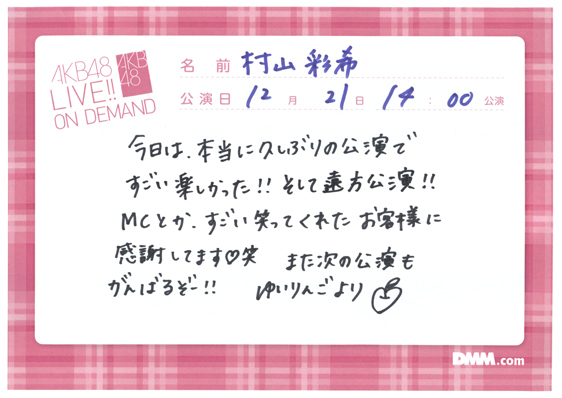 AKB48
LIVE!!
ON DEMAND
AKB
48
名前 村山彩希
公演日 12月 21日 14:00 公演
今日は、本当に久しぶりの公演で
すごい楽しかった!! そして遠方公演!!
MCとか、すごい笑ってくれたお客様に
感謝してます♡笑 また次の公演も
がんばるぞー!! ゆいりんごより
DMM.com